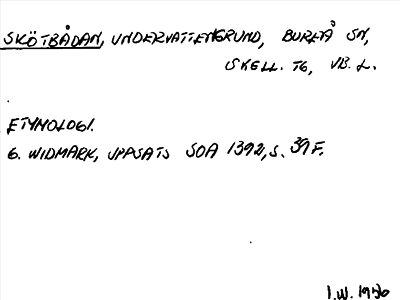 SKÖTBÅDAN, UNDERVATTENGRUND, BUREÅ SN,
SKELL. TG, VB. L.
ETYMOLOGI.
G. WIDMARK, UPPSATS SOA 1392, S. 39 F.
I.W. 1956